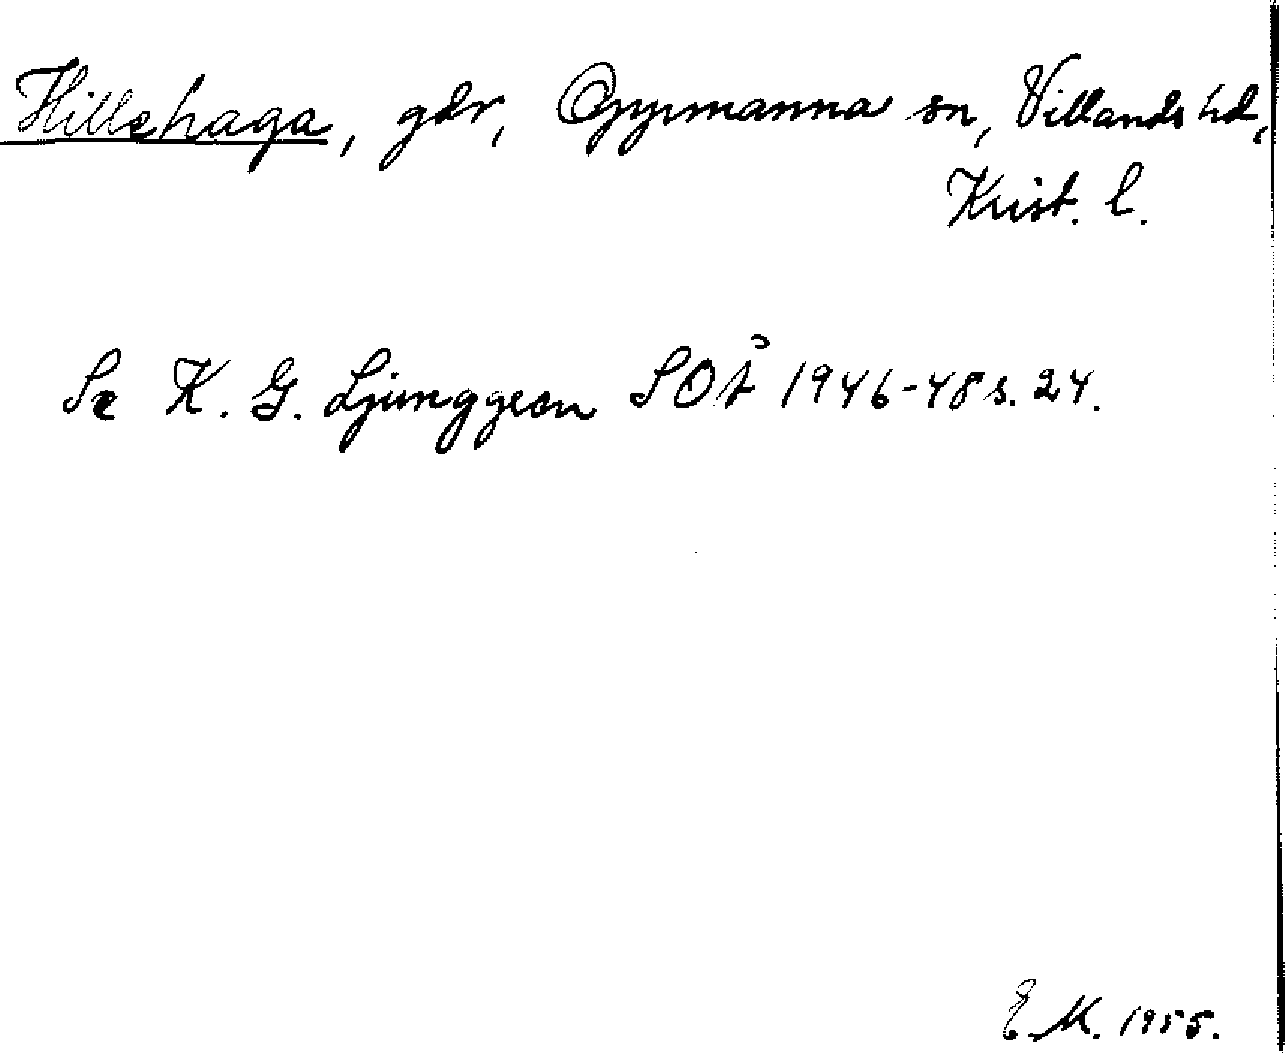 Hillehaga, gdr, Oppmanna sn, Villands hd,
Krist. l.
Se K. G. Ljunggren SOÅ 1946-48 s. 24.
E.M. 1955.